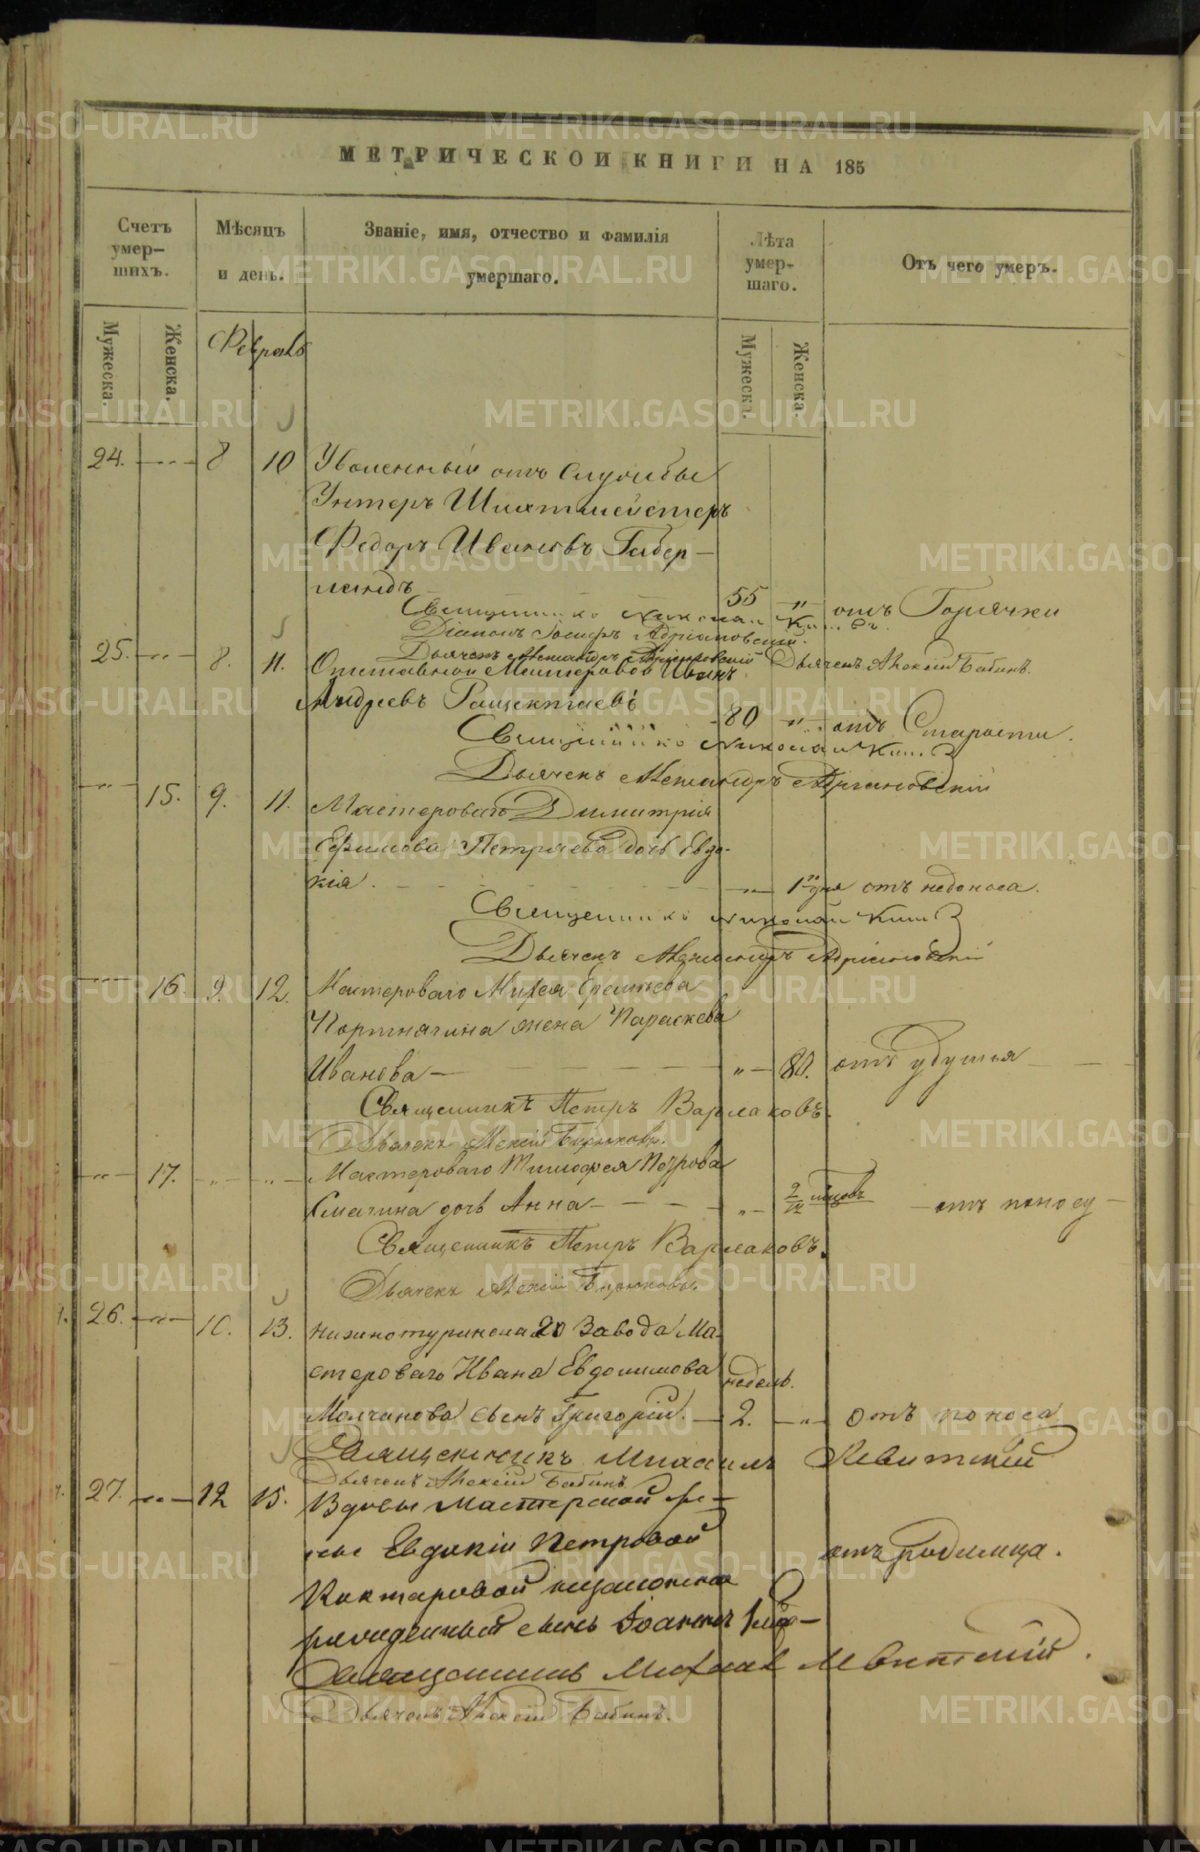 МЕТРИЧЕСКОЙ КНИГИ НА 185
Счетъ умер-
шихъ.
Мѣсяцъ
и день.
Званіе, имя, отчество и фамилія
умершаго.
Лѣта
умер-
шаго.
Отъ чего умеръ.
Мужеска.
Женска.
Мужеска.
Женска.
Февраль
24. 8 10 Уволенный отъ Службы
Унтеръ Шихтмейстеръ
Федоръ Ивановъ Габер-
ландъ 55 " отъ Горячки
Священникъ Николай
Діаконъ Іосифъ Адріановскій.
Дьячекъ Александръ Адріановскій Дьячекъ Алексій Бабинъ.
25. 8. 11. Отставной Мастеровой Иванъ
Андреевъ 80 " отъ Старости.
Священникъ Николай
Дьячекъ Александръ Адріановскій
15. 9. 11. Мастероваго Димитрія
Ефимова Петряева дочь Евдо-
кія. 1 дня отъ недоноса.
Священникъ Николай
Дьячекъ Александръ Адріановскій
16. 9. 12. Мастероваго Михея
Портнягина жена Параскева
Иванова — " — 80. отъ удушья
Священникъ Петръ Варлаковъ.
Дьячекъ Алексій
17. Мастероваго Тимофея Петрова
дочь Анна — отъ поносу —
Священникъ Петръ Варлаковъ.
Дьячекъ Алексій
26. 10. 13. Нижнотуринскаго Завода Ма-
стероваго Ивана Евдокимова недель.
Молчанова сынъ Григорій. — 2. — " отъ поноса
Священникъ Михаилъ Левитскій
Дьячекъ Алексій Бабинъ
27. 12 15. Вдовы Мастерской
Евдокіи Петровой отъ родимца.
незаконно
рожденный сынъ Іоаннъ
Священникъ Михаилъ Левитскій.
Дьячекъ Алексій Бабинъ.
METRIKI.GASO-URAL.RU